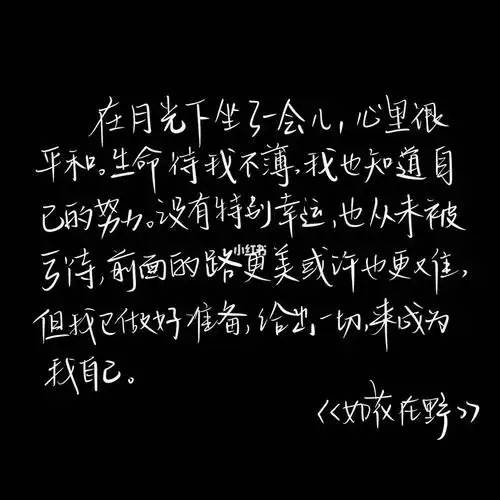 在月光下坐了一会儿，心里很
平和。生命待我不薄，我也知道自
己的努力。没有特别幸运，也从未被
亏待，前面的路更美或许也更难，
但我已做好准备，给出一切，来成为
我自己。
《如夜在野》
小红书